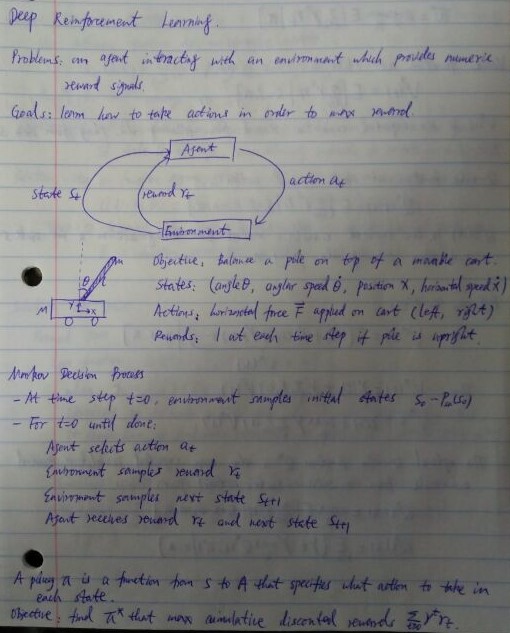 Deep Reinforcement Learning.
Problems: an agent interacting with an environment which provides numeric
reward signals.
Goals: learn how to take actions in order to max reward.
Agent
State St
reward rt
action at
Environment
Objective: balance a pole on top of a movable cart.
States: (angle θ, anglar speed θ̇, position x, horizontal speed ẋ)
Actions: horizontal force F⃗ applied on cart (left, right)
Rewards: 1 at each time step if pole is upright.
m
θ
M
Y
x
Markov Decision Process
- At time step t=0, environment samples initial states S₀ ~ P(S₀)
- For t=0 until done:
Agent selects action at
Environment samples reward rt
Enviroment samples next state St+1
Agent receives reward rt and next state St+1
A policy π is a function from S to A that specifies what action to take in
each state.
Objective: find π* that max cumulative discounted rewards Σ t≥0 γᵗ rt.